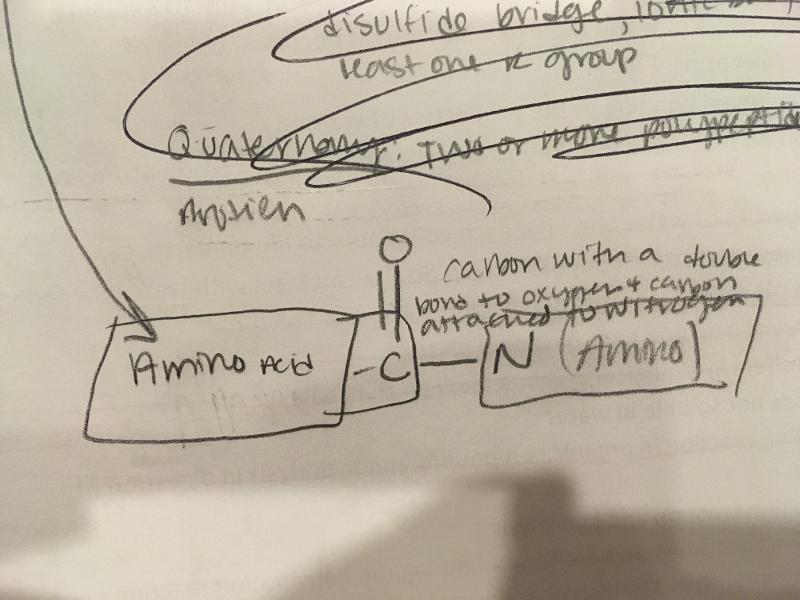 disulfide bridge, ionic
least one R group
Quaternary: Two or more polypeptide
O
carbon with a double
bond to oxygen + carbon
attached to nitrogen
Amino Acid -C-N (Amino)